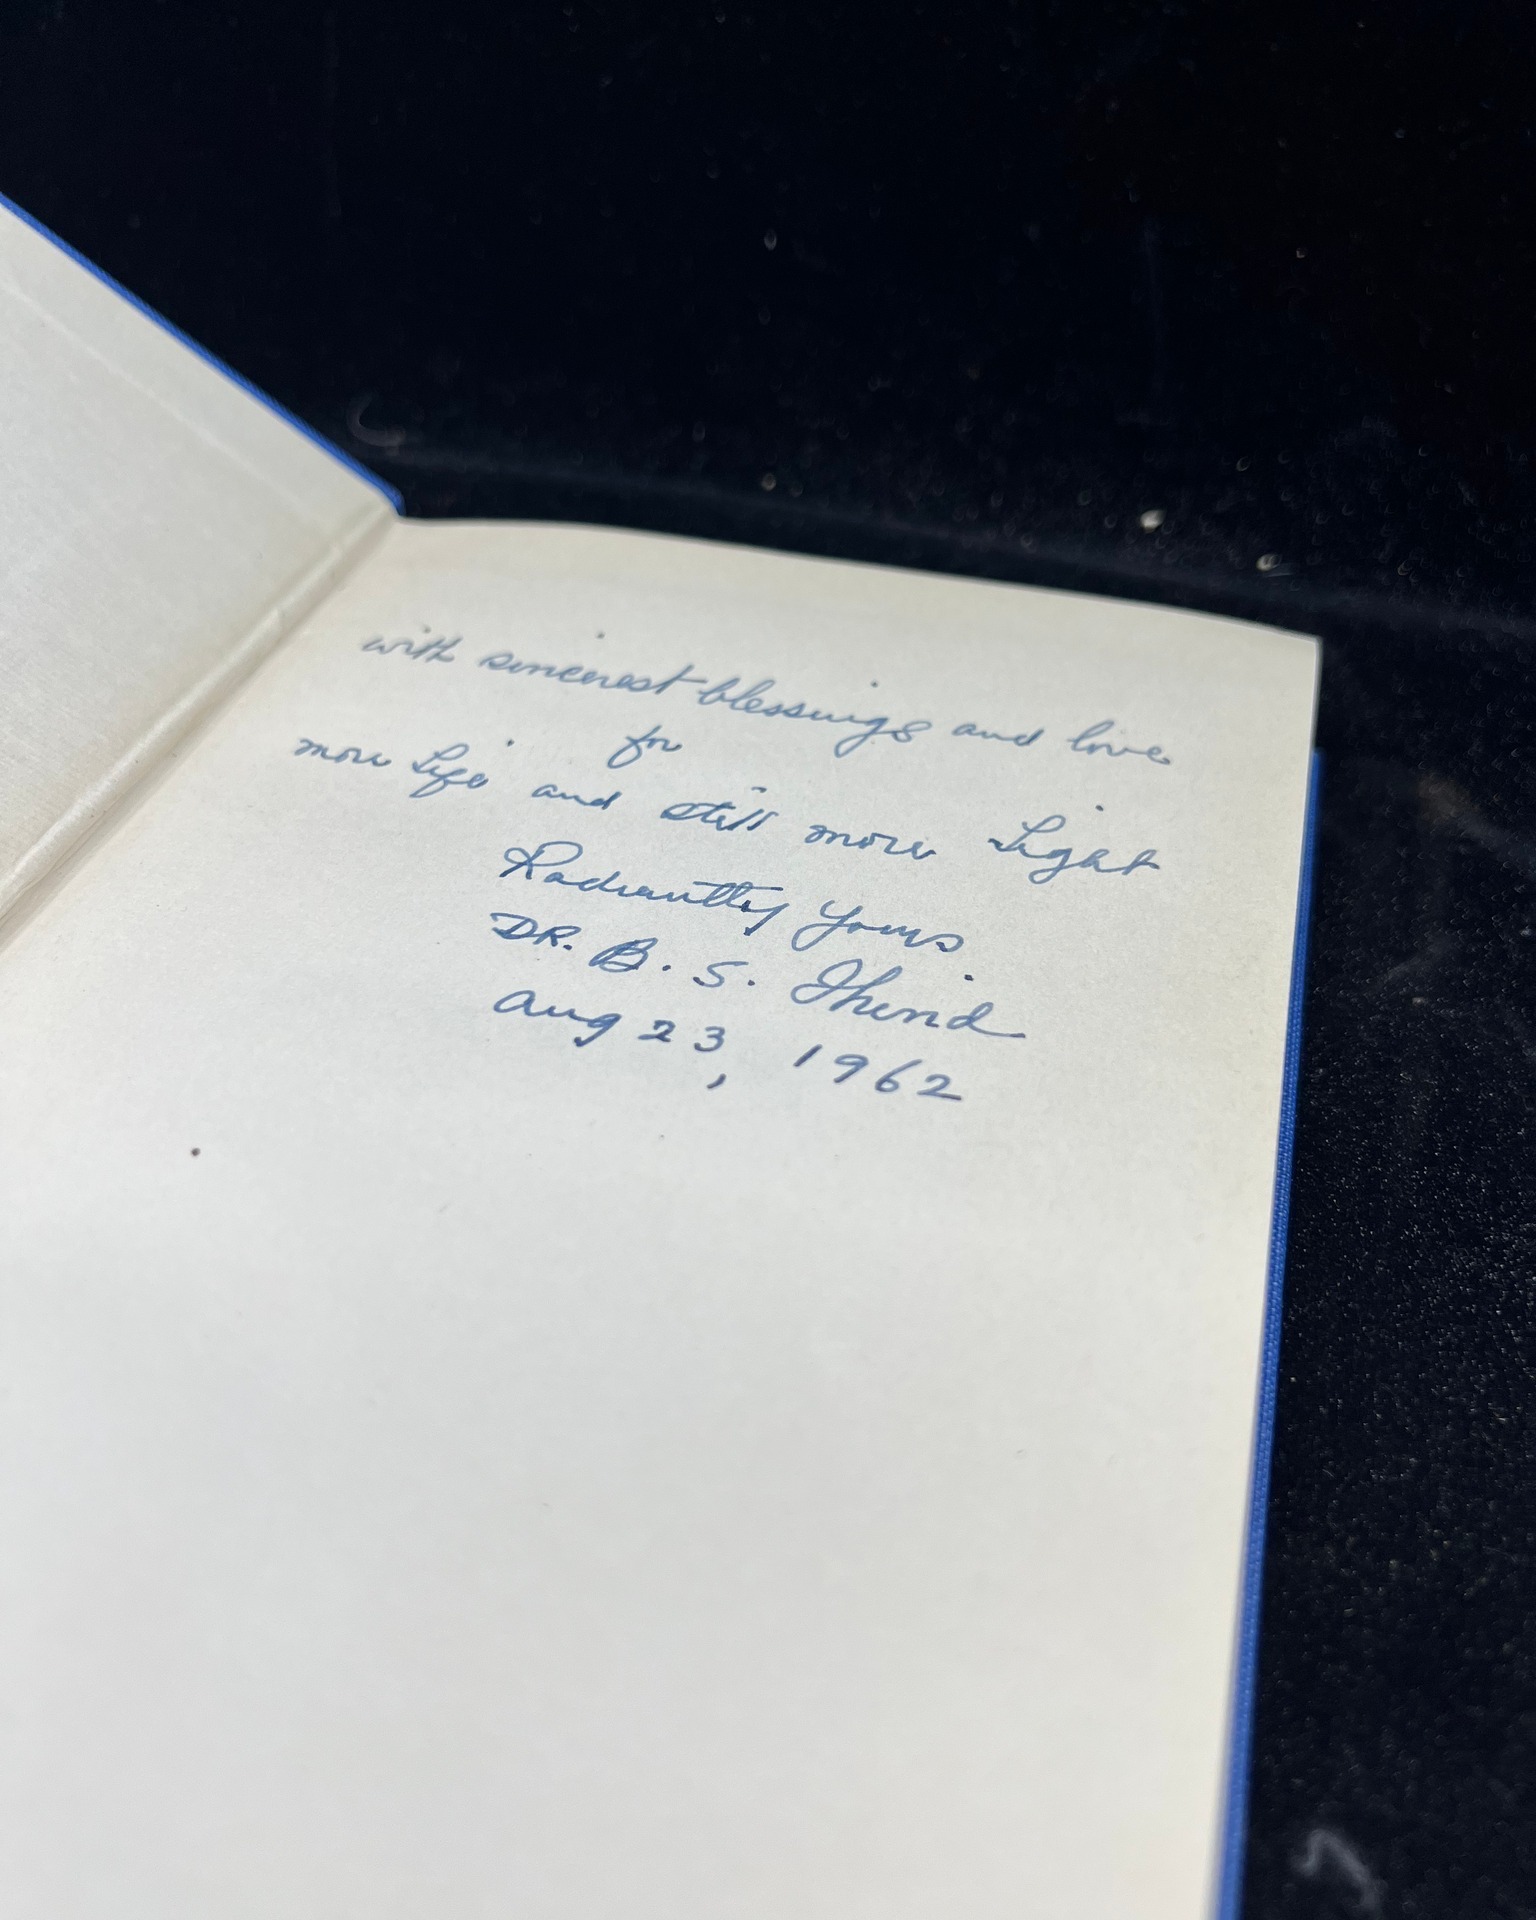 with sincerest blessings and love
for
more Life and still more Light
Radiantly yours
DR. B. S. Thind
Aug 23, 1962